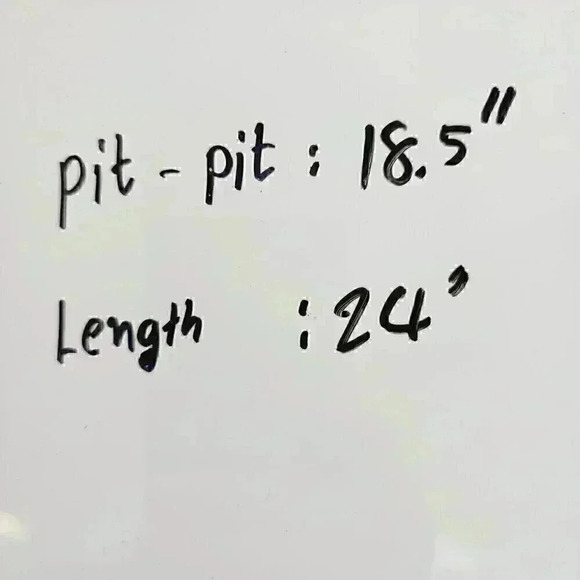 pit - pit : 18.5"
Length : 24'